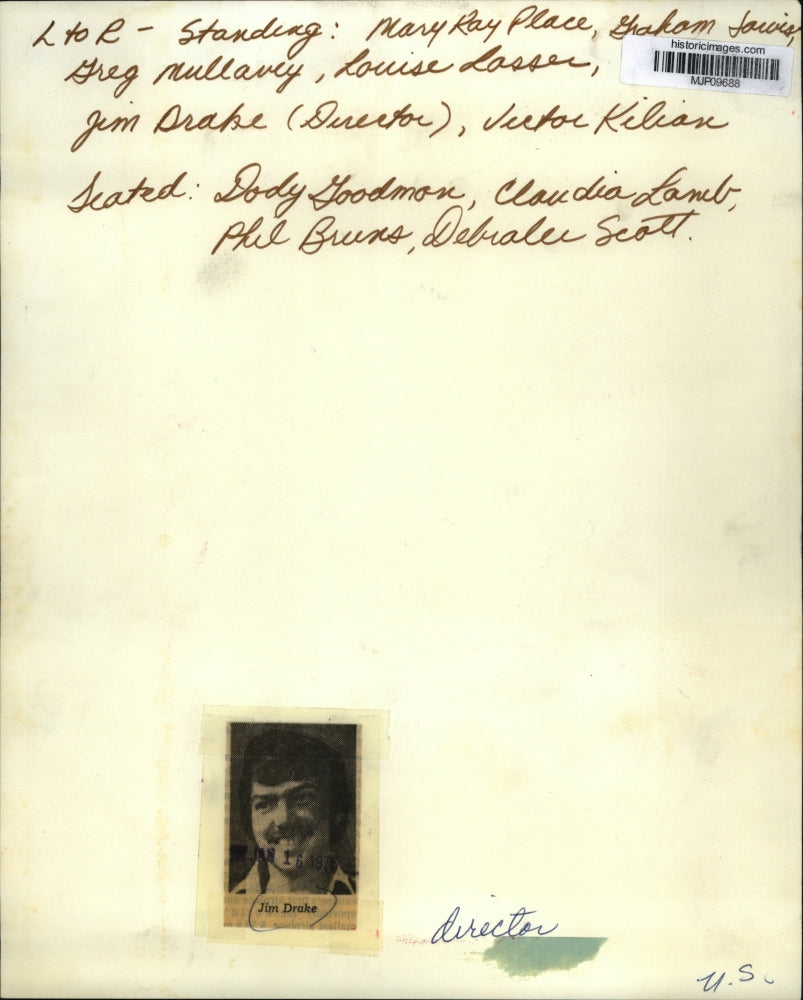 L to R - Standing: Mary Kay Place, Graham Jarvis,
Greg Mullavey, Louise Lasser,
historicimages.com
MJP09688
Jim Drake (Director), Victor Kilian
Seated: Dody Goodman, Claudia Lamb,
Phil Bruns, Debralee Scott.
JAN 16 1976
Jim Drake
director
U.S.